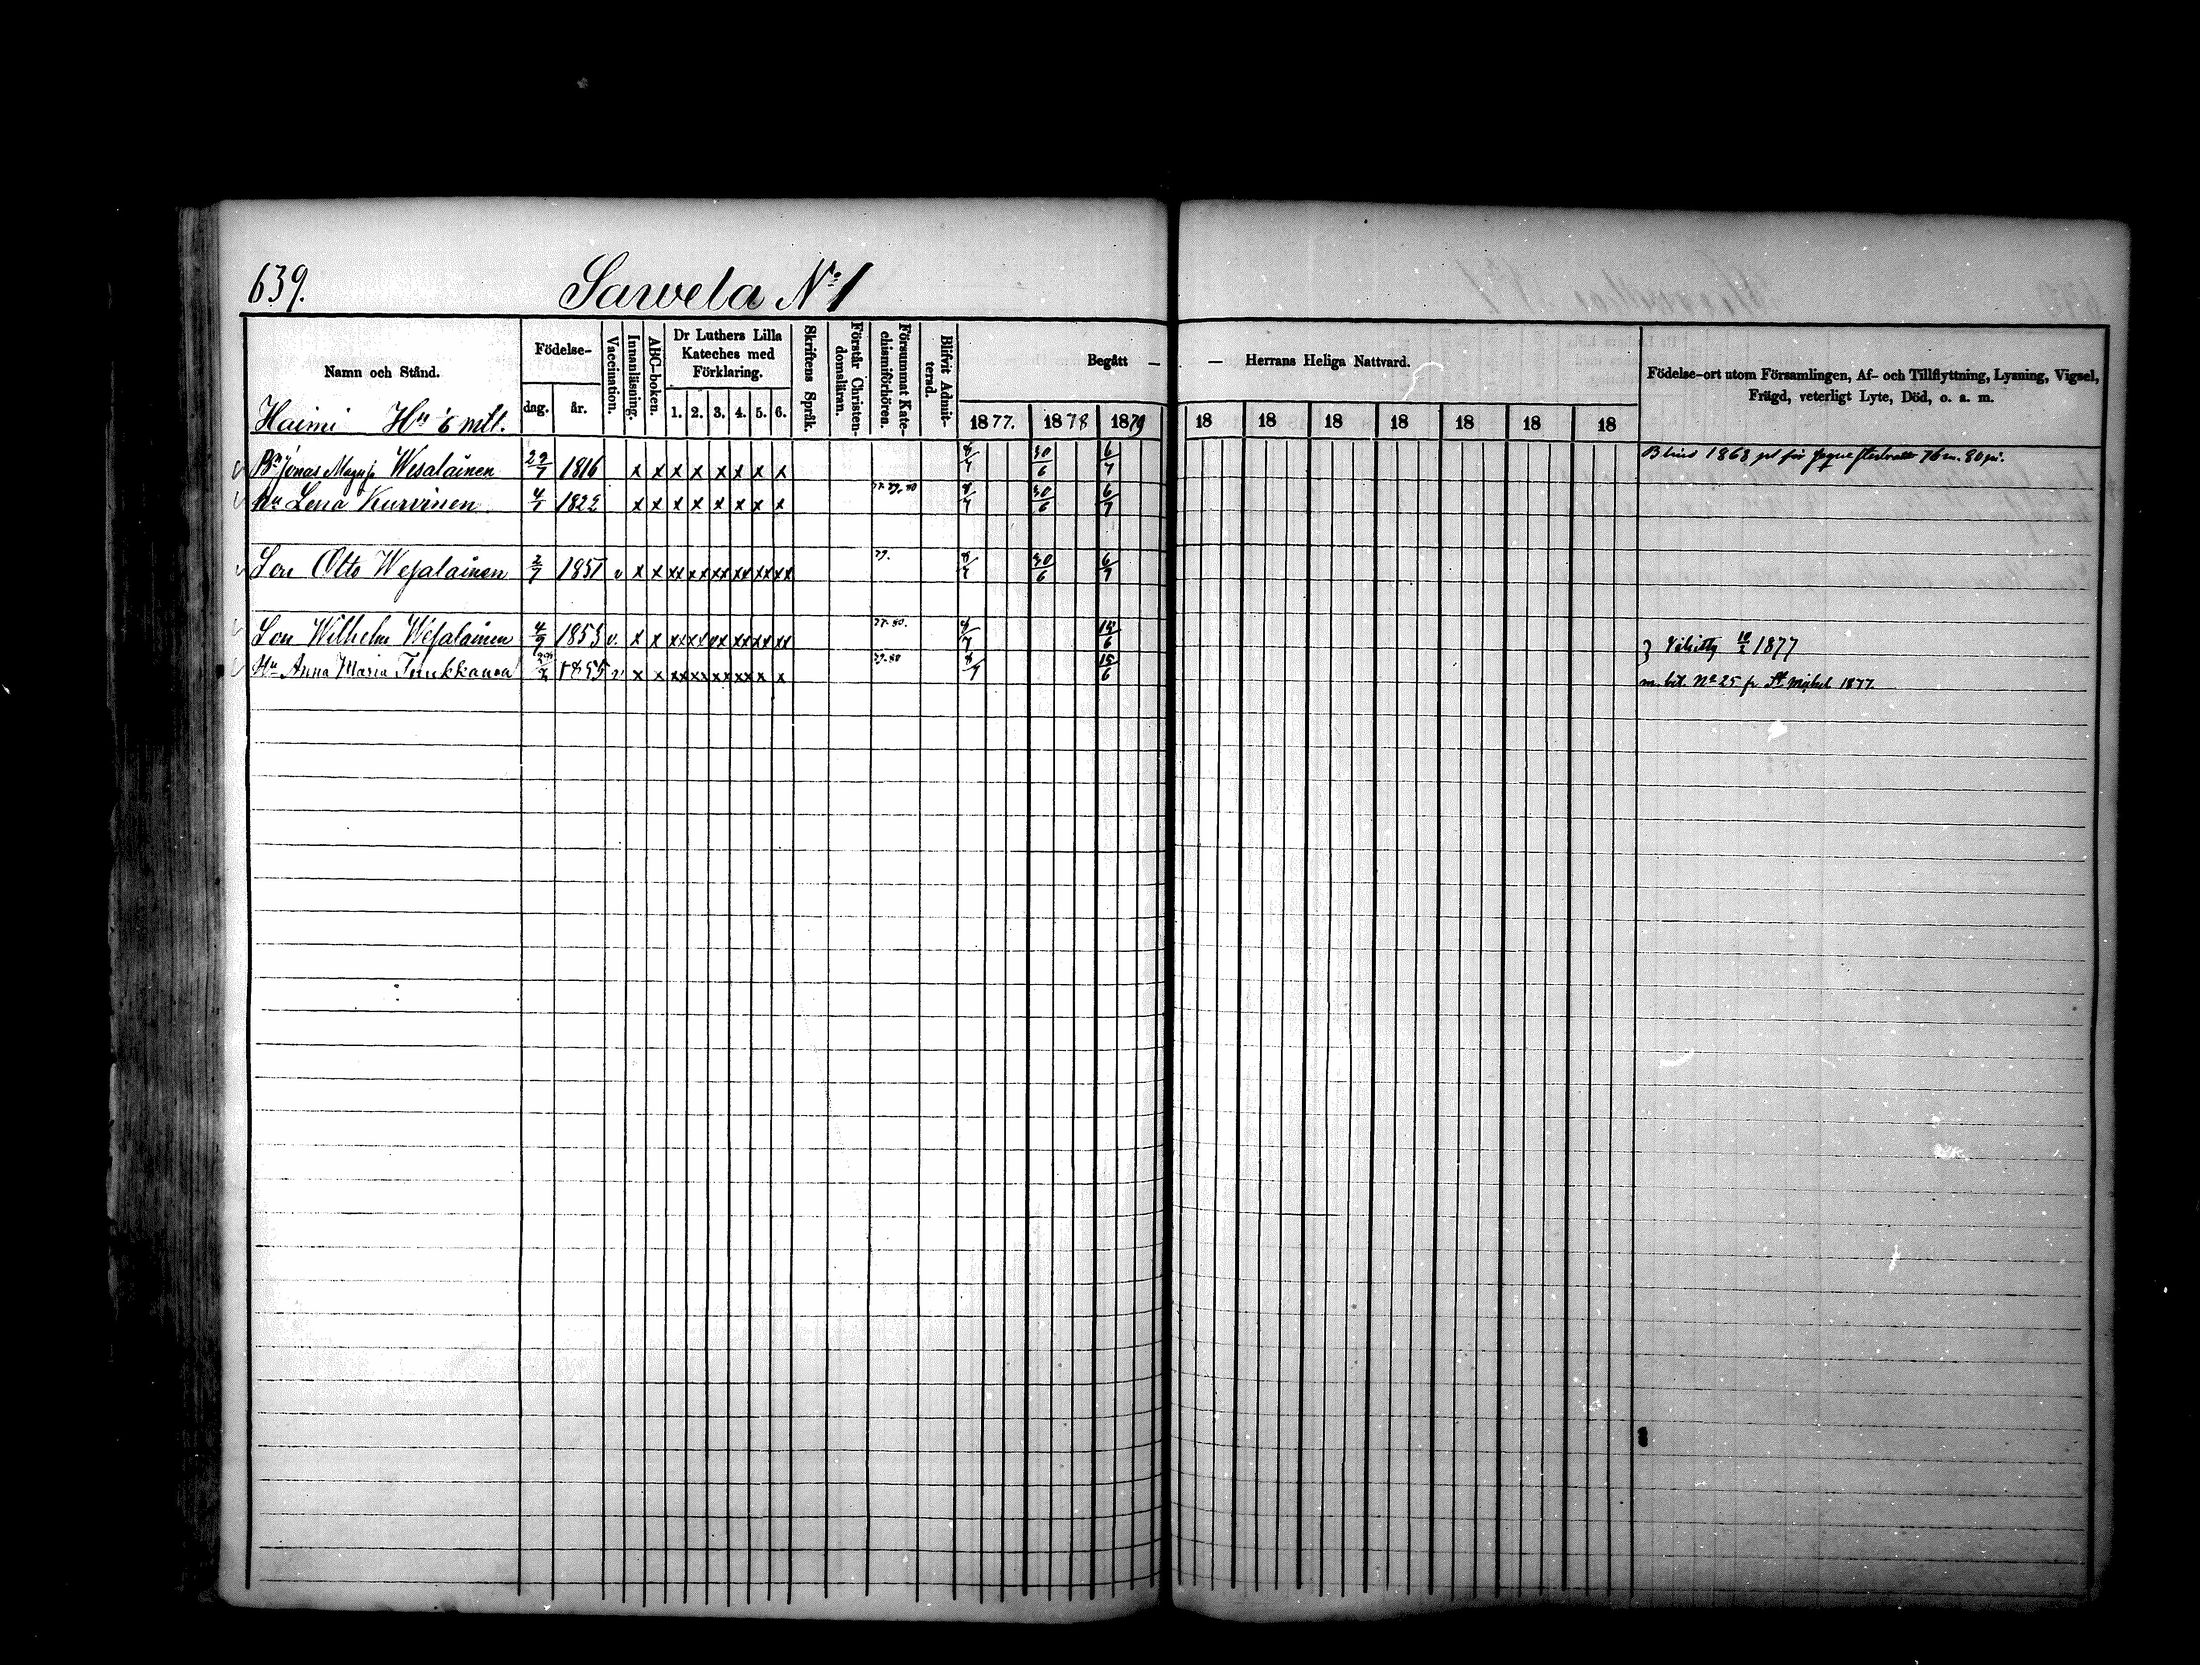 639.
Sawela No 1
Namn och Stånd.
Födelse-
dag.
år.
Vaccination.
Innanläsning.
ABC-boken.
Dr Luthers Lilla
Kateches med
Förklaring.
1. 2. 3. 4. 5. 6.
Skriftens Språk.
Förstår Christen-
domsläran.
Försummat Kate-
chismiförhören.
Blifvit Admit-
terad.
Begått —
— Herrans Heliga Nattvard.
1877. 1878 1879 18 18 18 18 18 18 18
Födelse-ort utom Församlingen, Af- och Tillflyttning, Lysning, Vigsel,
Frägd, veterligt Lyte, Död, o. a. m.
Haimi Hn 6 mtl.
Bn Jonas Wesalainen 29/7 1816 x x x x x x x x 8/7 30/6 6/7 1868 76 m. 80 pi.
Hu Lena Kurvinen 4/1 1822 x x x x x x x x 8/7 30/6 6/7
Son Otto Wesalainen 2/7 1851 v x x xx xx xx xx xx xx 79. 8/7 30/6 6/7
Son Wilhelm Wesalainen 4/9 1853 v. x x xx xx xx xx xx xx 8/7 15/6 Vihitty 1877
Hu Anna Maria 1855 v x x xx xx xx xx x x 79-80 8/7 15/6 m. bet. No 25 fr. St Mickel 1877.